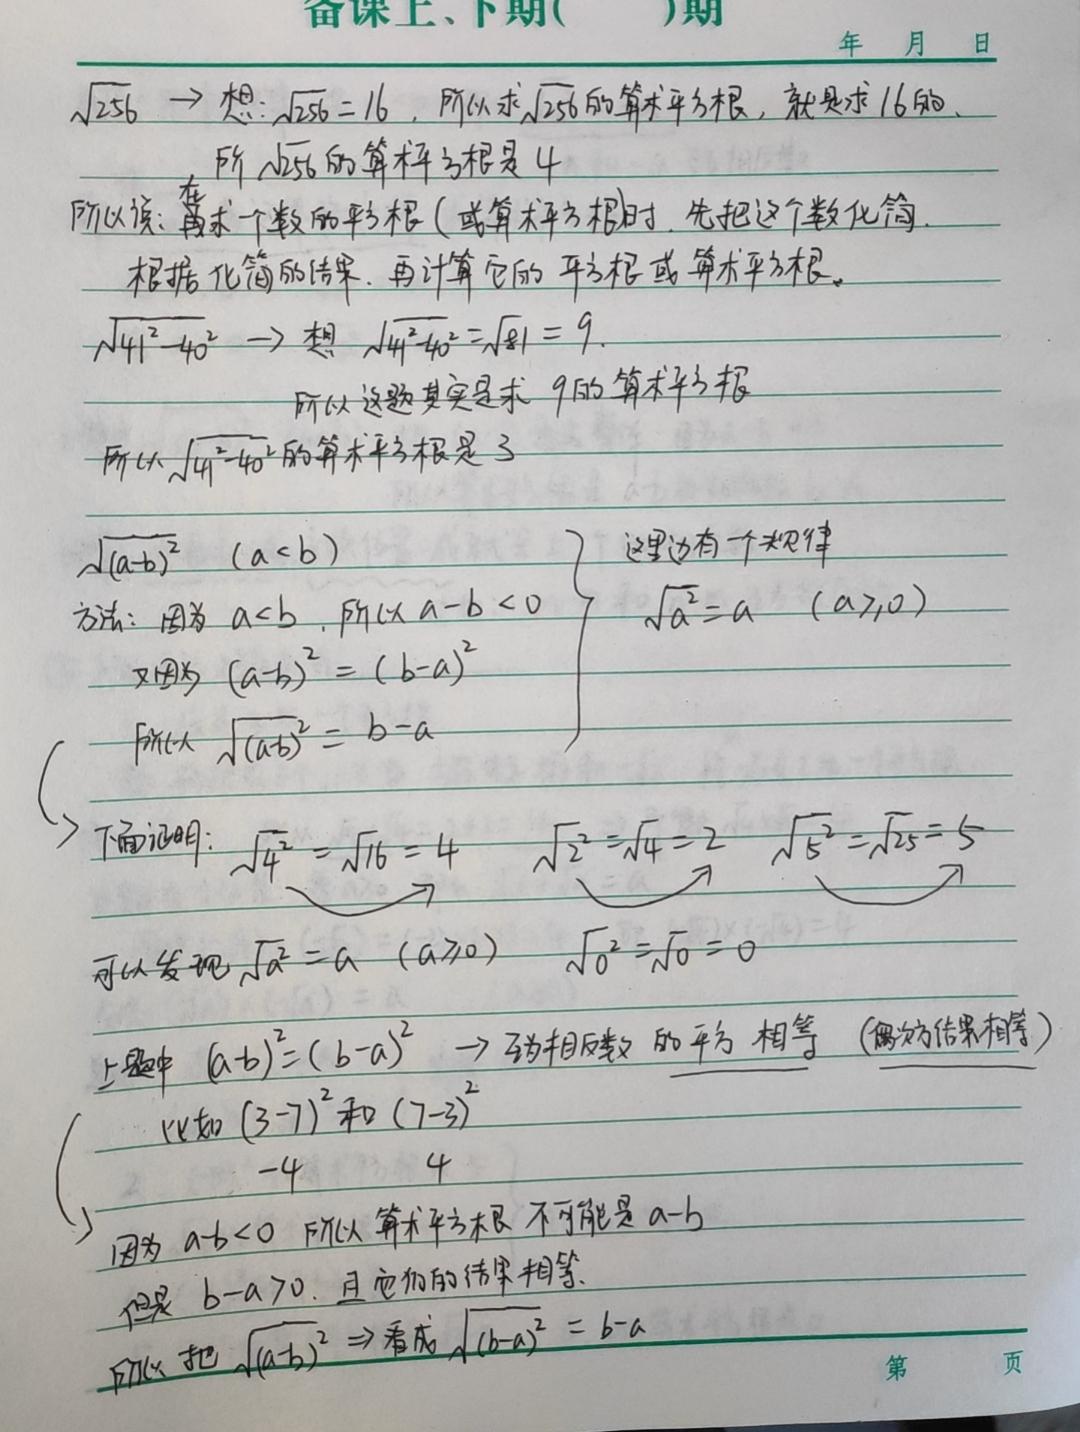 备课上、下期(　　)期
年　月　日
√256 → 想: √256 = 16 , 所以求√256的算术平方根, 就是求16的.
所 √256的算术平方根是4
所以说: 在求一个数的平方根(或算术平方根)时. 先把这个数化简.
根据化简的结果. 再计算它的 平方根 或 算术平方根。
√(41²-40²) → 想 √(41²-40²) = √81 = 9.
所以这题其实是求 9的算术平方根
所以√(41²-40²)的算术平方根是3
√(a-b)² (a<b)
方法: 因为 a<b , 所以 a-b<0
又因为 (a-b)² = (b-a)²
所以 √(a-b)² = b-a
这里边有一个规律
√a² = a (a≥0)
下面证明: √4² = √16 = 4 √2² = √4 = 2 √5² = √25 = 5
可以发现 √a² = a (a≥0) √0² = √0 = 0
上题中 (a-b)² = (b-a)² → 互为相反数 的 平方 相等 (偶次方结果相等)
比如 (3-7)² 和 (7-3)²
-4 4
因为 a-b<0 所以 算术平方根 不可能是 a-b
但是 b-a>0. 且它们的结果相等.
所以 把 √(a-b)² ⇒ 看成 √(b-a)² = b-a
第　页